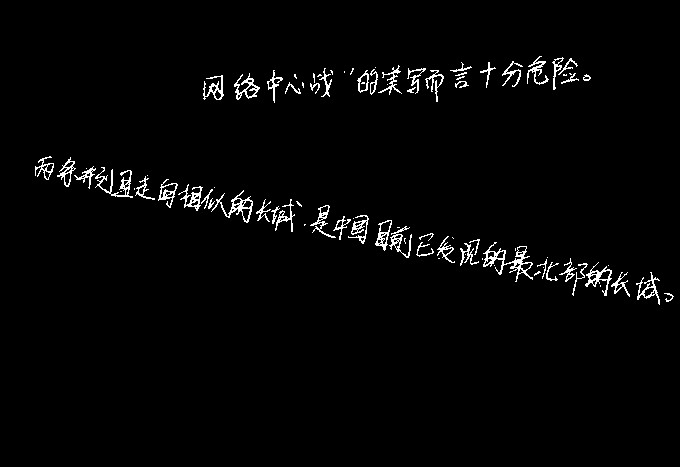 网络中心战”的美军而言十分危险。
两条并列且走向相似的长城,是中国目前已发现的最北部的长城。